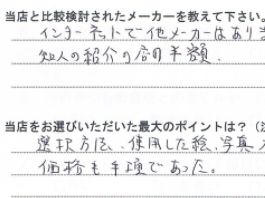 当店と比較検討されたメーカーを教えて下さい。
インターネットで他メーカーはありま
知人の紹介の
当店をお選びいただいた最大のポイントは？（注
選択方法、使用した絵、写真
価格も手頃であった。